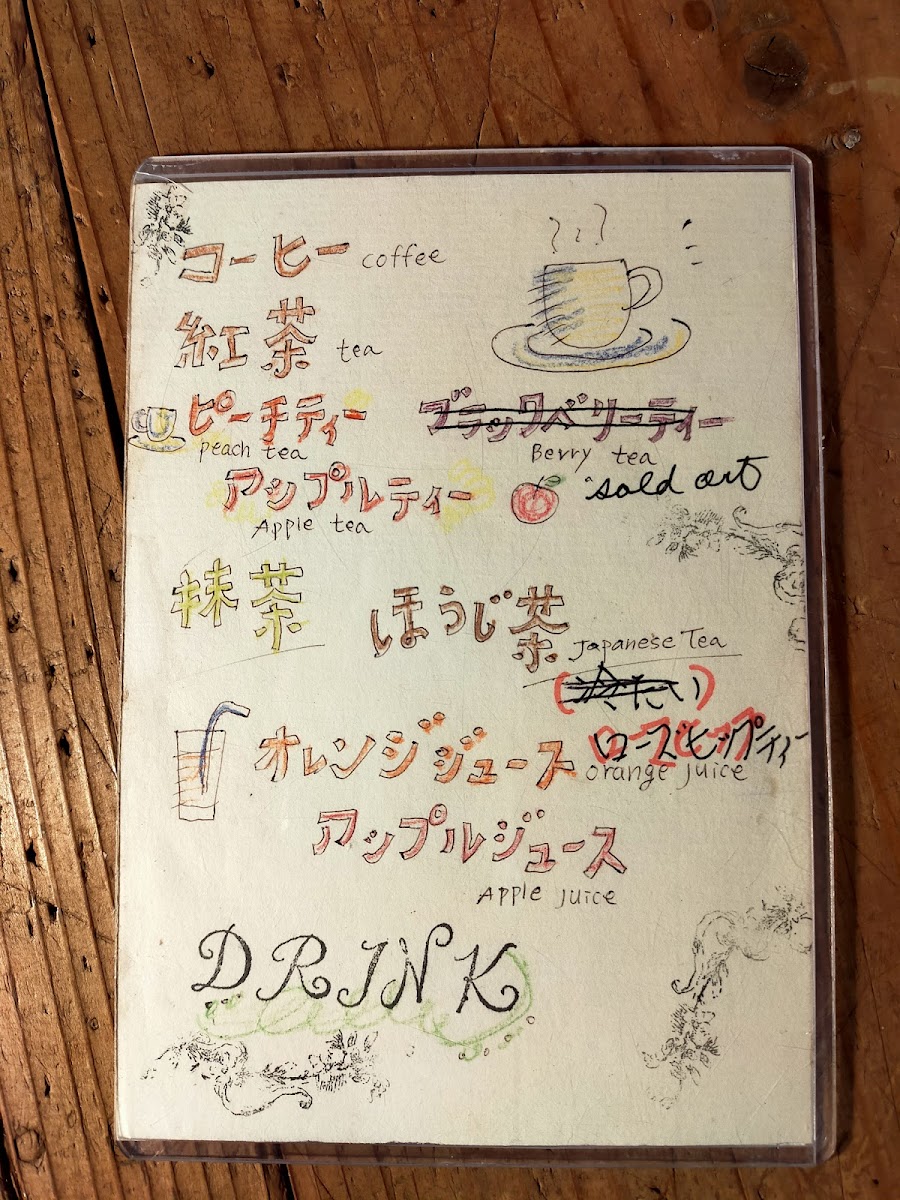 コーヒー coffee
紅茶 tea
ピーチティー ブラックベリーティー
peach tea Berry tea
アップルティー sold out
Apple tea
抹茶 ほうじ茶
Japanese Tea
(冷たい)
ローズヒップティー
オレンジジュース orange juice
アップルジュース
Apple juice
DRINK